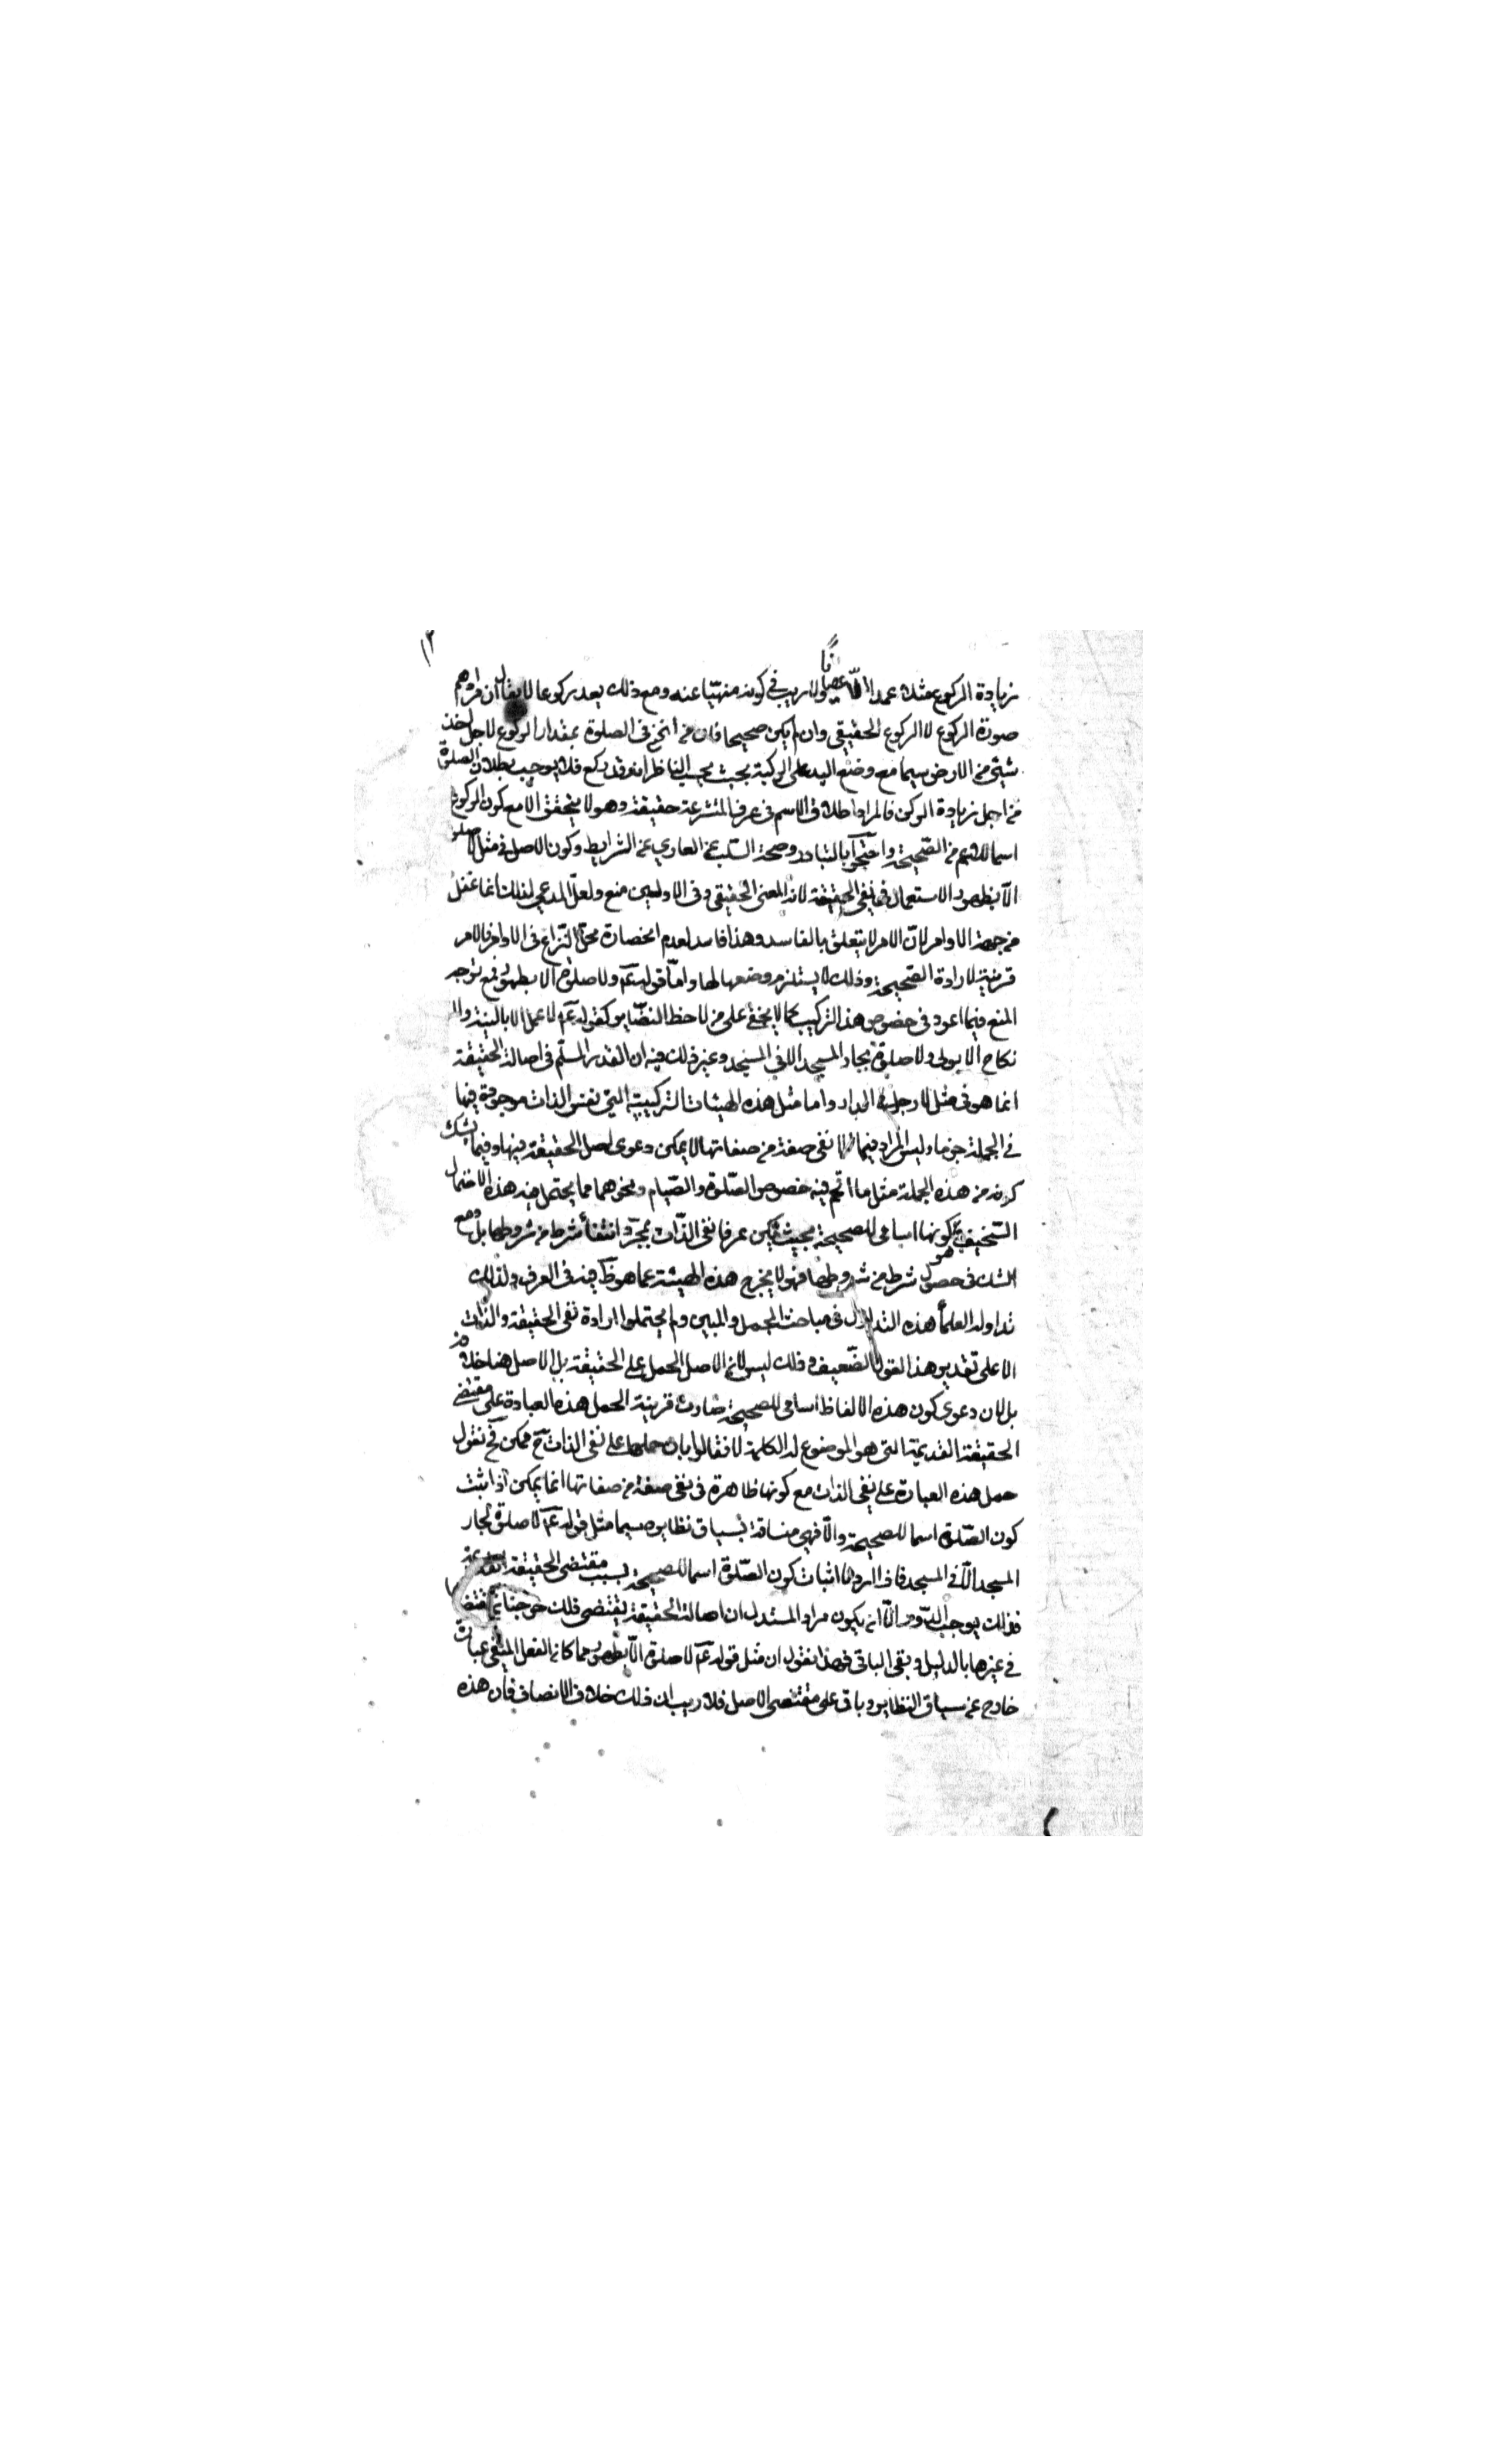 ١٢
زيادة الركوع مثلا عمدا ولا ريب في كونه منهيّا عنه ومع ذلك يعد ركوعا لا يقال ان مرادهم
صورة الركوع لا الركوع الحقيقي وان لم يكن صحيحا فان من انحنى في الصلوة بمقدار الركوع لاجل اخذ
شيئ من الارض سيما مع وضع اليد على الركبة بحيث يحسب الناظر انه قد ركع فلا يوجب بطلان الصلوة
من اجل زيادة الركن فالمراد اطلاق الاسم في عرف المتشرعة حقيقة وهو لا يتحقق الا مع كون الركوع
اسما للاعم من الصّحيحة واحتجّوا بالتبادر وصحة السّلب عن العاري عن الشرايط وكون الاصل في مثل لا صلوة
الّا بطهور الاستعمال في نفي الحقيقة لانه المعنى الحقيقي وفي الاوليين منع ولعلّ المدعي لذلك انما غفل
من جهة الاوامر لانّ الامر لا يتعلق بالفاسد وهذا فاسد لعدم انحصار محلّ النّزاع في الاوامر فالامر
قرينة لارادة الصّحيحة وذلك لا يستلزم وضعها لها وامّا قوله عم ولا صلوة الا بطهور فمع توجه
المنع فيما ادعوه في خصوص هذا التركيب كما لا يخفى على من لاحظ النظاير كقوله عم لا عمل الا بالنية ولا
نكاح الا بولي ولا صلوة لجار المسجد الا في المسجد وغير ذلك فيه ان القدر المسلّم في اصالة الحقيقة
انما هو في مثل لا رجل في الدار واما مثل هذه الهيئات التركيبيه التي نفس الذات موجودة فيها
في الجملة جزما وليس المراد فيها الا نفى صفة من صفاتها لا يمكن دعوى اصل الحقيقة فيها وفيما يشك
كونه من هذه الجملة مثل ما نحن فيه خصوص الصّلوة والصّيام ونحوهما مما يحتمل فيه هذه الاحتمال
السّخيف وهو كونها اسامى للصحيحة بحيث يمكن عرفا نفى الذّات بمجرّد انتفاء شرط من شروطها بل ومع
الشك في حصول شرط من شروطها فهو لا يخرج هذه الهيئة عما هو ظ فيه في العرف ولذلك
تداوله العلماء هذه التداول في مباحث المجمل والمبين ولم يحتملوا ارادة نفى الحقيقة والذات
الا على تقدير هذا القول الضّعيف وذلك ليس لان الاصل الحمل على الحقيقة بل الاصل هنا خلافه
بل لان دعوى كون هذه الالفاظ اسامى للصحيحة صارت قرينة لحمل هذه العبارة على مقتضى
الحقيقة القديمة التى هو الموضوع له الكلمة لا فقالوا بان حملها على نفى الذات ح ممكن فح نقول
حمل هذه العبارة على نفي الذات مع كونها ظاهرة في نفى صفة من صفاتها انما يمكن اذا ثبت
كون الصّلوة اسما للصحيحة والّا فهي منساقة بسياق نظايره سيما مثل قوله عم لا صلوة لجار
المسجد الّا في المسجد فاذا اردنا اثبات كون الصّلوة اسما للصحيحة بسبب مقتضى الحقيقة القديمة
فذلك يوجب الدّور الّا ان يكون مراد المستدل ان اصالة الحقيقة يقتضى ذلك خرجنا عن مقتضاها
في غيرها بالدليل وبقى الباقى فهذا نقول ان مثل قوله عم لا صلوة الّا بطهور مما كان الفعل المنفى عبادة
خارج عن سياق النظاير وباق على مقتضى الاصل فلا ريب ان ذلك خلاف الانصاف فان هذه